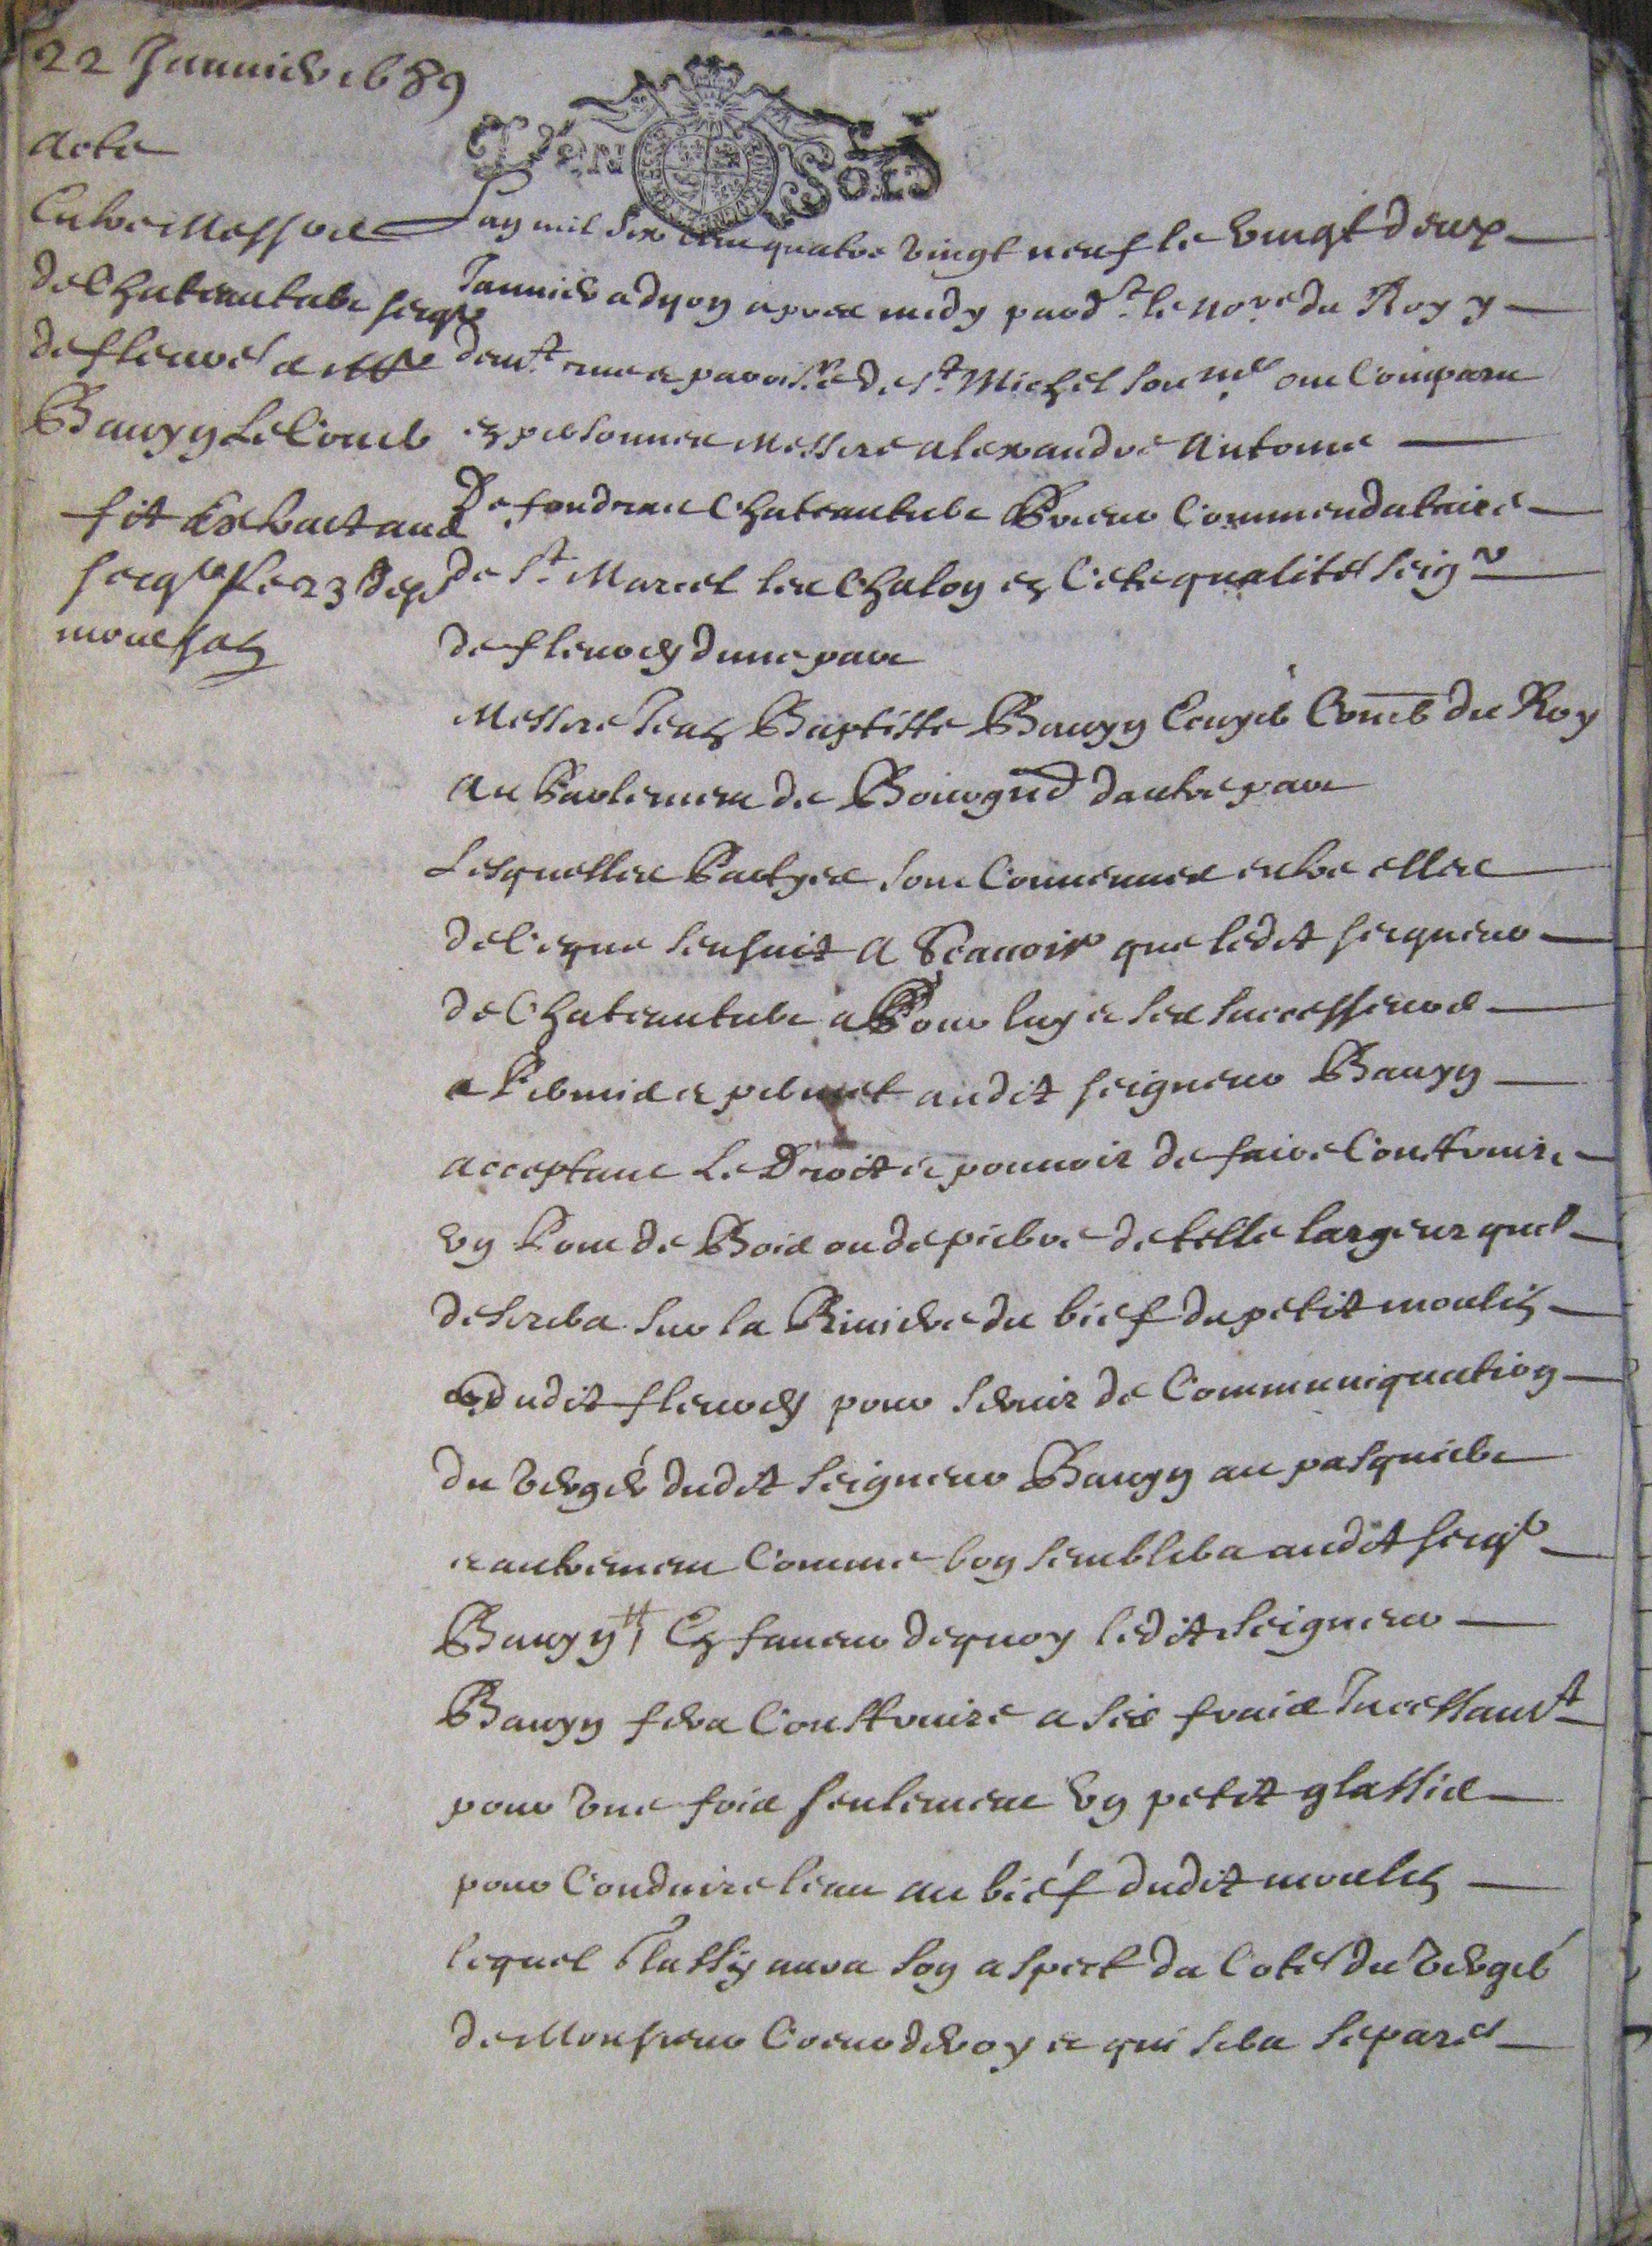 22 Januier 1689
Acte
Entre Messire
de Chateautiebe seigr
de fleurey a Mre
Bauyn Le Comb
fit extract aud
seigr Le 23 dep
UN SOLD
Lan mil six cent quatre vingt neuf le vingt deux
Januier a dijon apres midy pardt. le nore. du Roy y
demt. rue et paroisse de St. Michel ont Comparu
en personnes Messire alexandre Antoine
De foudras Chateautiebe Prieur Commendataire
de St. Marcel les Chalon en Cete qualité seigr
de fleurey dune part
Messire Jean Baptiste Bauyn Conser du Roy
au Parlement de Bourgne dautre part
Lesquelles Partyes sont Conuenues entre elles
de Ce que sensuit A Scauoir que ledit seigneur
de Chateautiebe a Pour luy et ses successeurs
a Permis et permet audit seigneur Bauyn
acceptant Le Droit et pouuoir de faire Construire
vn Pont de Bois ou de pierre de telle largeur quil
desirera sur la Riuiere du bief du petit moulin
dudit fleurey pour seruir de Communiquation
du verger dudit seigneur Bauyn au pasquier
et autrement Comme bon semblera audit seigr
Bauyn # En faueur dequoy ledit seigneur
Bauyn fera Construire a ses frais Incessamt
pour vne fois seulement vn petit glassis
pour Conduire leau au bief dudit moulin
lequel Glassis aura son aspect du Coté du verger
de Monsieur et qui sera separé